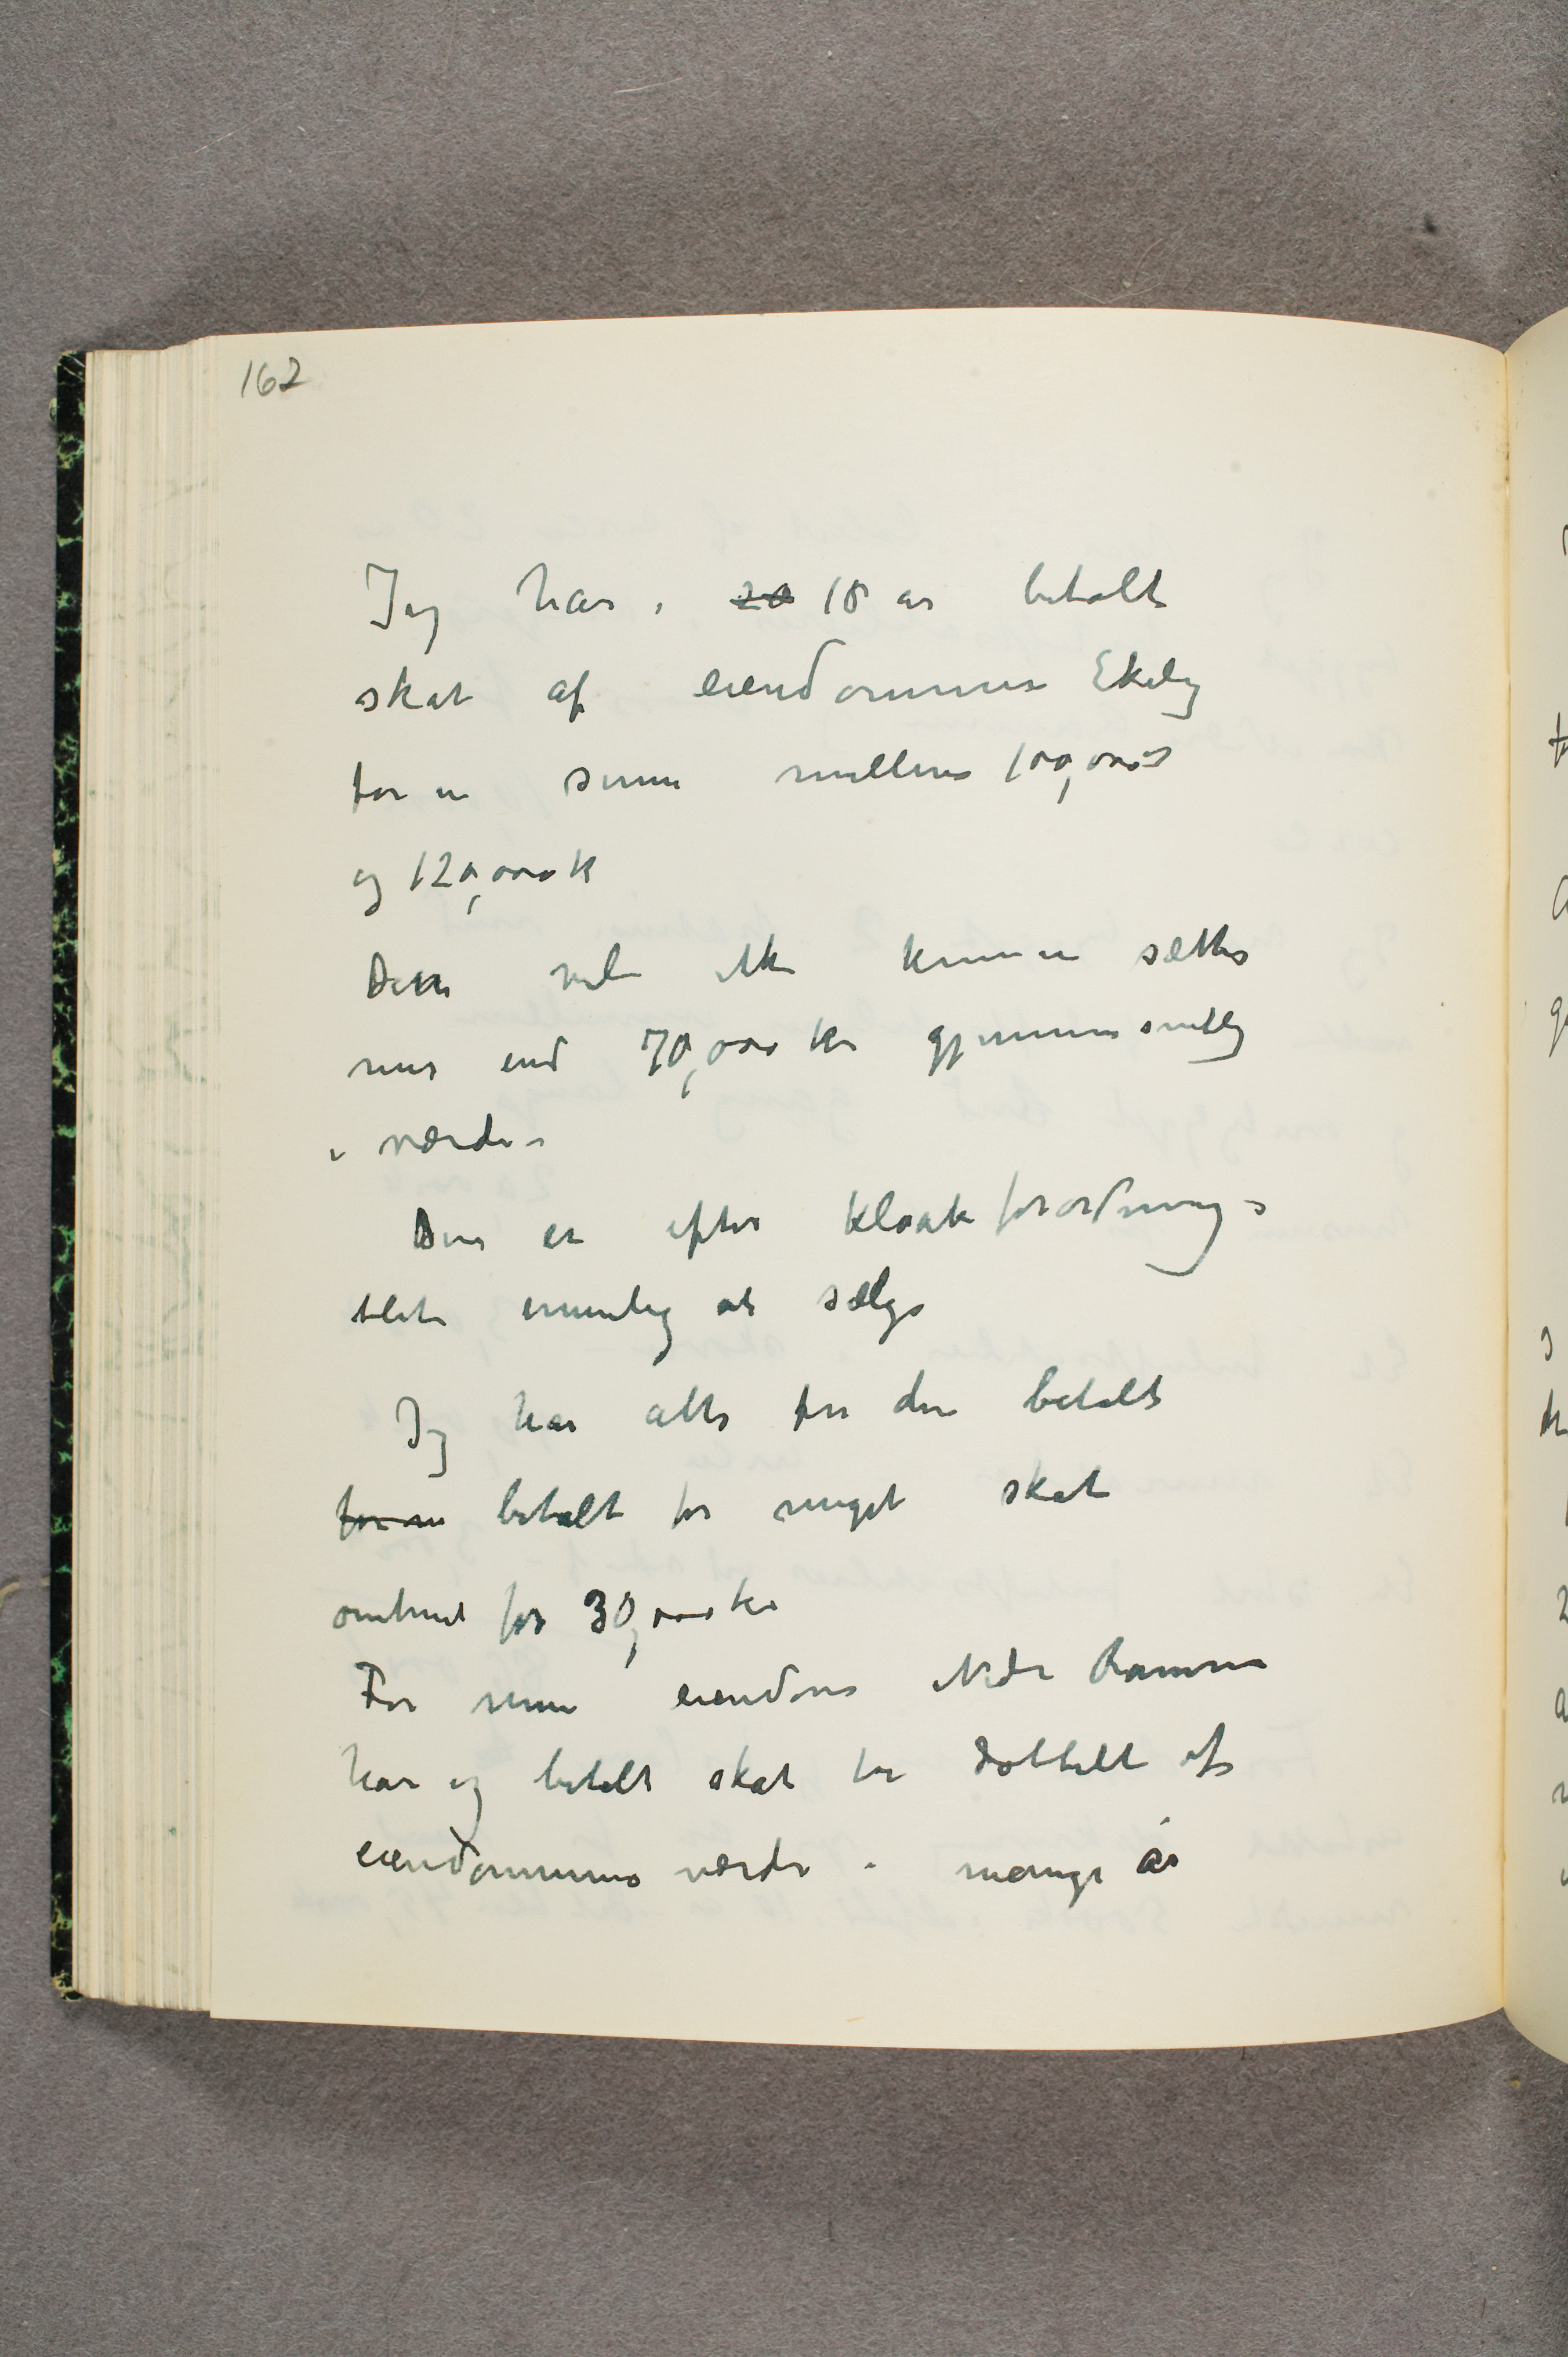 162
Jeg har i 20 18 år betalt
skat af eiendommen Ekely
for en sum mellem 100,000
og 120,000 k
Denne vil ikke kunne sættes
mer end 70,000 kr gjennemsnitlig
i værdi –
Den er efter kloakforordning –
blit umulig at sælge
Jeg har altså for den betalt
for m betalt for meget skat
omtrent for 30,000 kr
For min eiendom Nedre Ramme
har jeg betalt skat for dobbelt af
eiendommens værdi i mange år